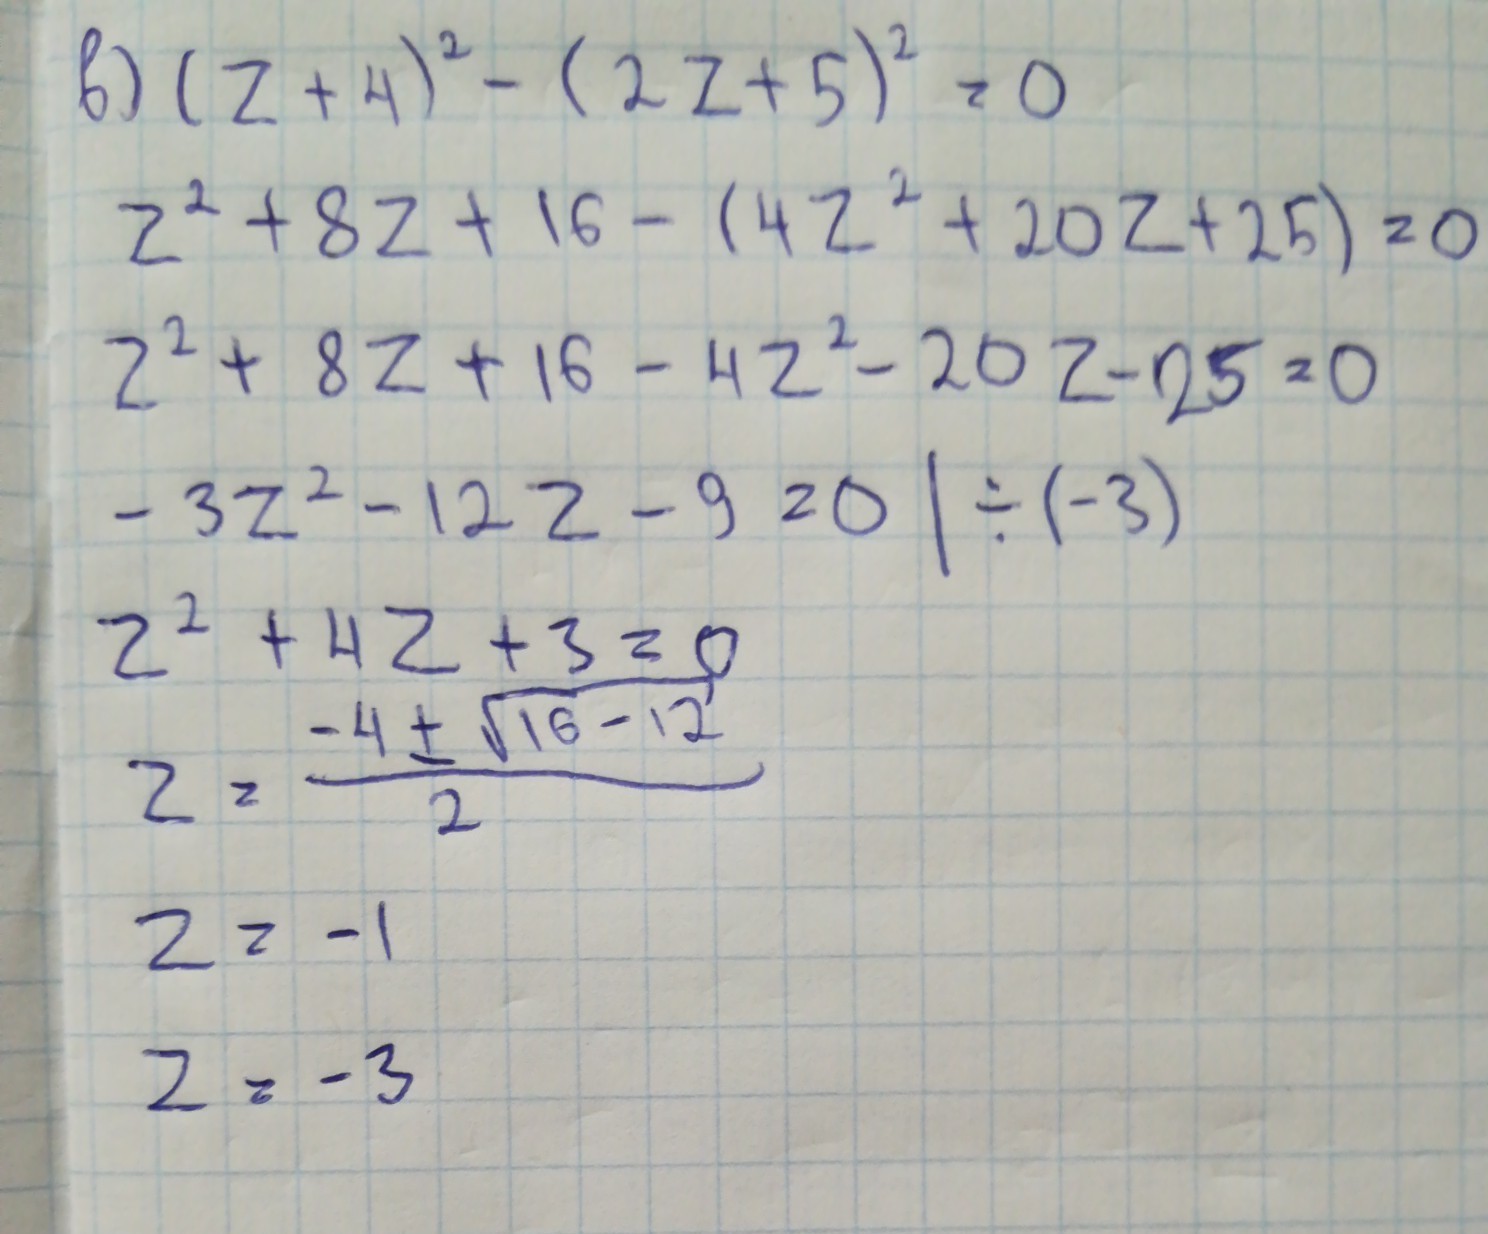 в) (z+4)² - (2z+5)² = 0
z² + 8z + 16 - (4z² + 20z + 25) = 0
z² + 8z + 16 - 4z² - 20z - 25 = 0
- 3z² - 12z - 9 = 0 | ÷ (-3)
z² + 4z + 3 = 0
z = (-4 ± √(16 - 12)) / 2
z = -1
z = -3